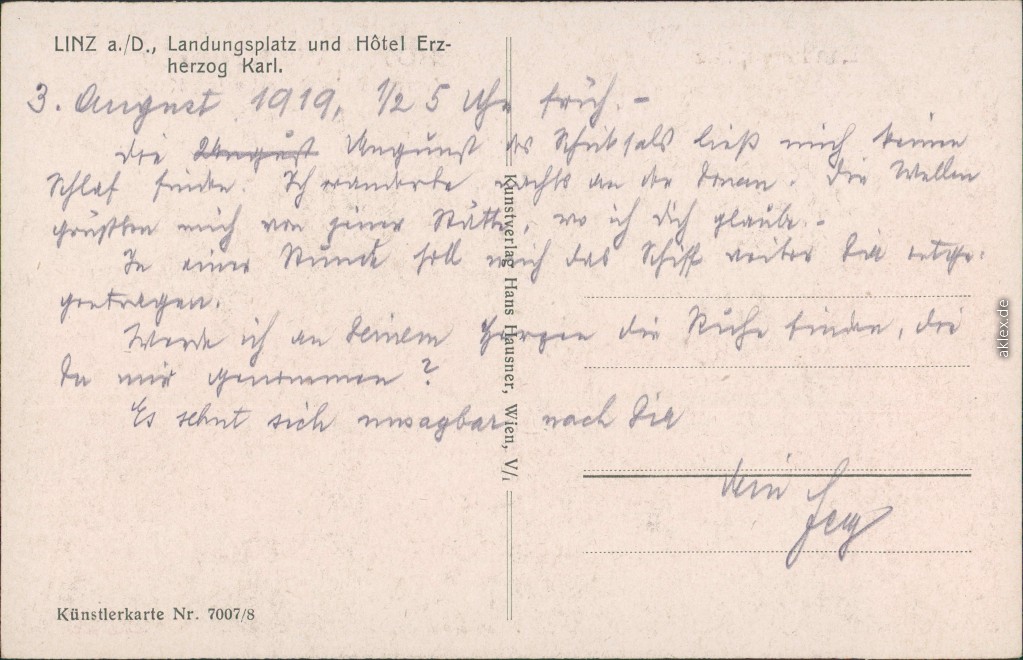 LINZ a./D., Landungsplatz und Hôtel Erz-
herzog Karl.
3. August 1919, 1/2 5 Uhr früh. -
Die August Ungunst des Schicksals ließ mich keinen
Schlaf finden. Ich wanderte nachts an der Donau. Die Wellen
grüßten mich von jener Stätte, wo ich Dich glaube. -
In einer Stunde soll mich das Schiff weiter Dir entge-
gentragen.
Werde ich an Deinem Herzen die Ruhe finden, die
Du mir genommen?
Es sehnt sich unsagbar nach Dir
Dein
Kunstverlag Hans Hausner, Wien, V/1
Künstlerkarte Nr. 7007/8
aklex.de